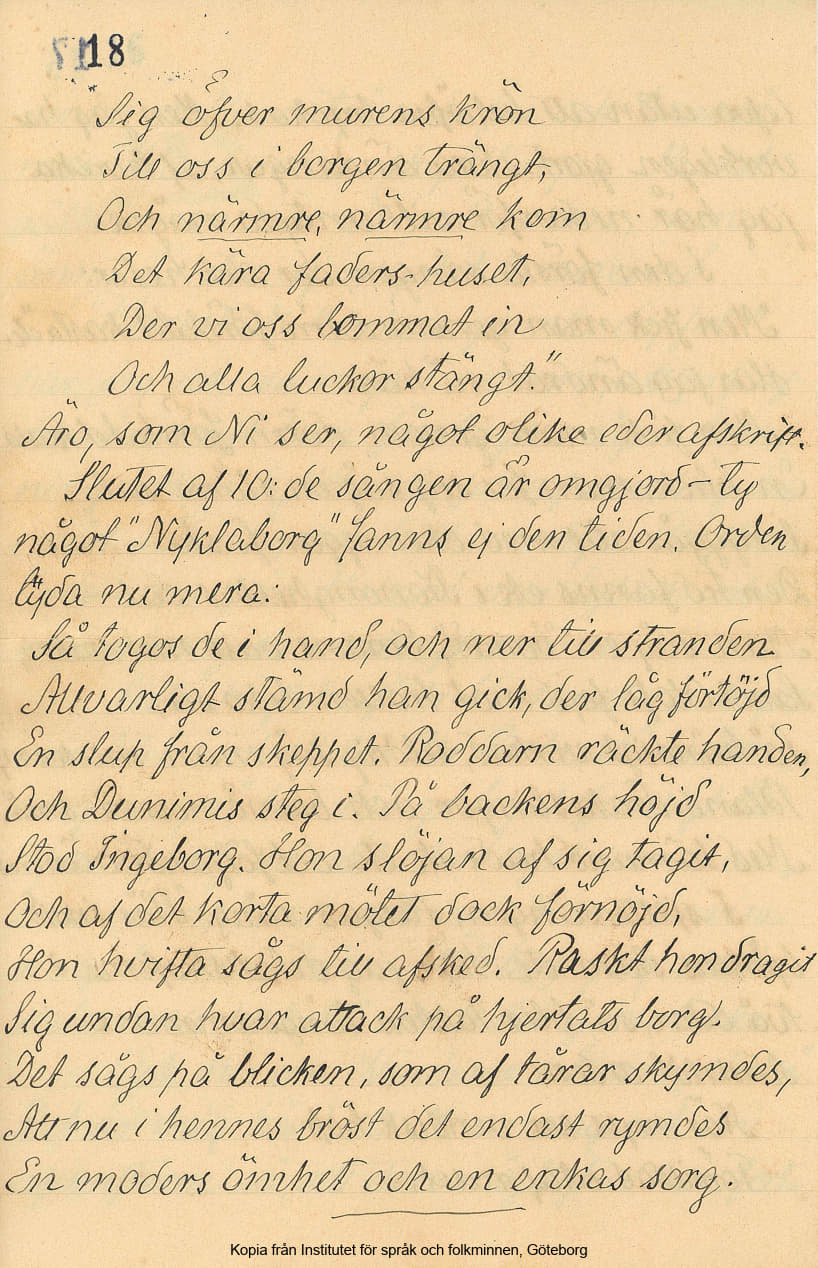 18
Sig öfver murens krön
Till oss i borgen trängt,
Och närmre, närmre kom
Det kära faders-huset,
Der vi oss bommat in
Och alla luckor stängt."
Äro, som Ni ser, något olika eder afskrift.
Slutet af 10:de sången är omgjord – ty
något "Nyklaborg" fanns ej den tiden. Orden
lyda nu mera:
Så togos de i hand, och ner till stranden
Allvarligt stämd han gick, der låg förtöjd
En slup från skeppet. Roddarn räckte handen,
Och Dunimis steg i. På backens höjd
Stod Ingeborg. Hon slöjan af sig tagit,
Och af det korta mötet dock förnöjd,
Hon hvifta sågs till afsked. Raskt hon dragit
Sig undan hvar attack på hjertats borg.
Det sågs på blicken, som af tårar skymdes,
Att nu i hennes bröst det endast rymdes
En moders ömhet och en enkas sorg.
Kopia från Institutet för språk och folkminnen, Göteborg